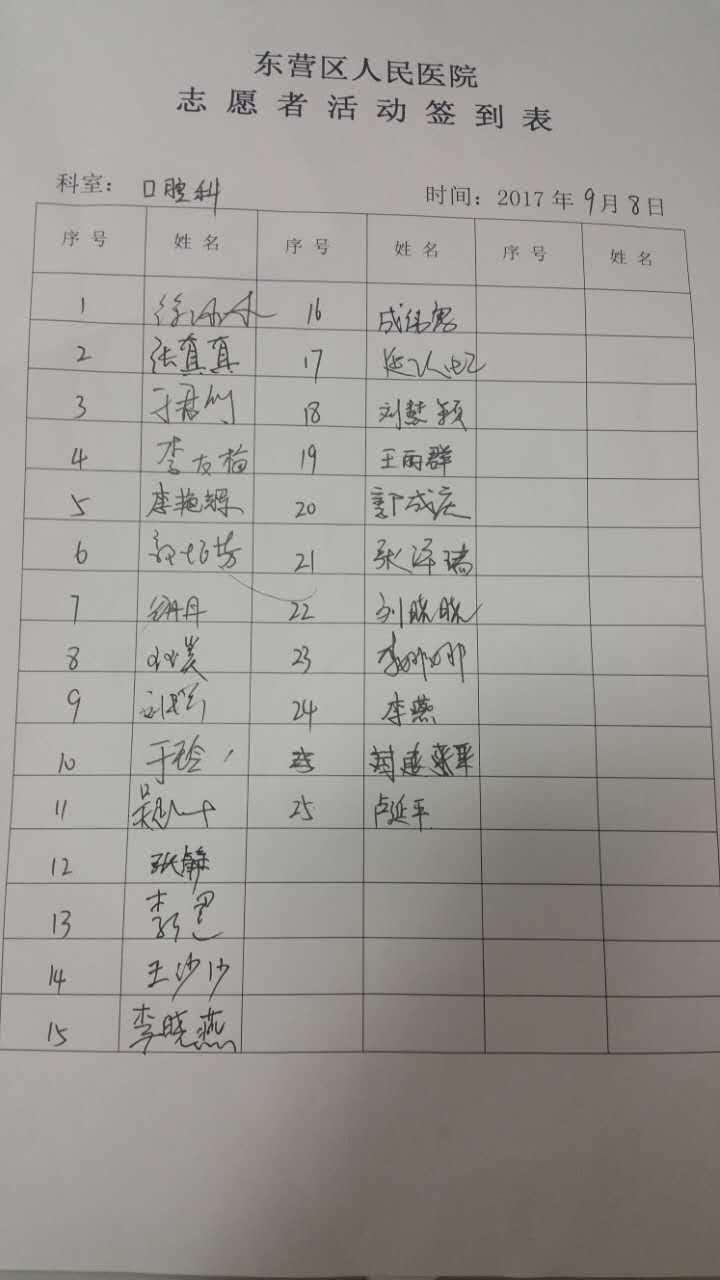 东营区人民医院
志愿者活动签到表
科室：口腔科 时间：2017年9月8日
序号 姓名 序号 姓名 序号 姓名
1 16
2 张真真 17
3 于君 18 刘慧颖
4 李友梅 19 王雨群
5 李艳辉 20 郭成庆
6 21 张泽瑞
7 丹 22 刘晓晓
8 23 李娜娜
9 24 李燕
10 于玲
11 吴 25 卢延平
12 张静
13 李
14 王沙沙
15 李晓燕